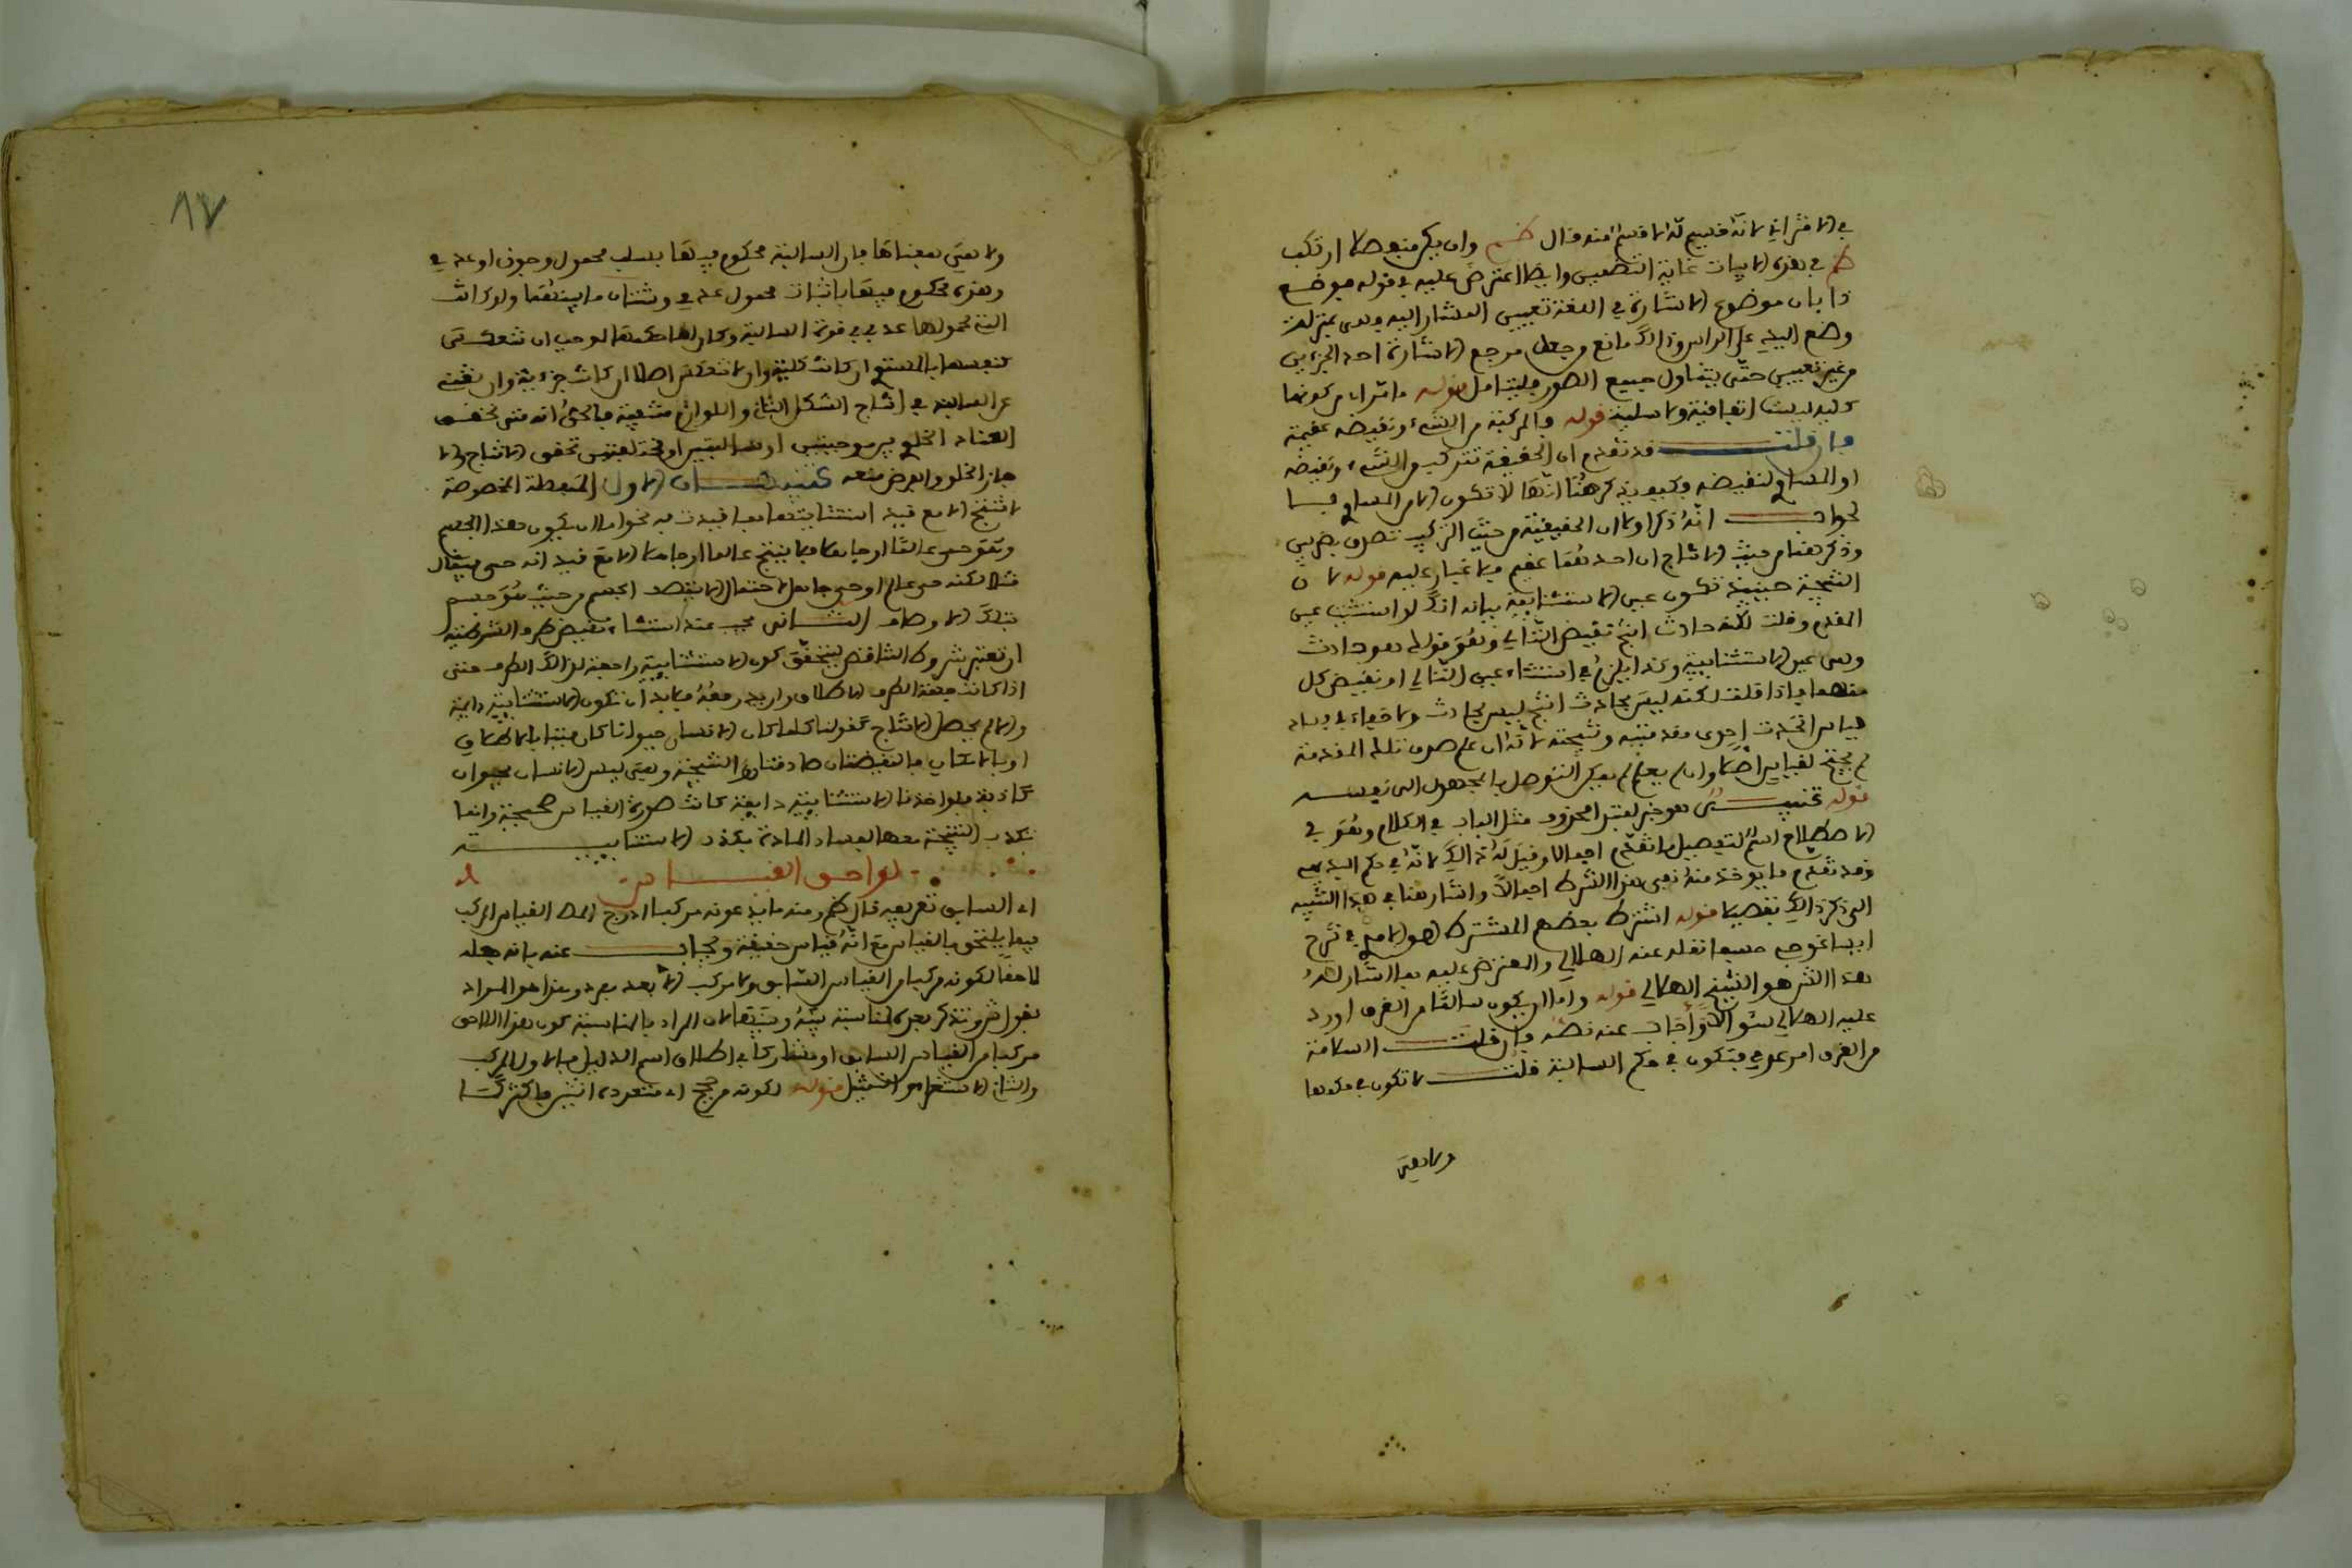 في الاقتراني لانه قسيم له لا قسم منه قال ظم وان يكن منفصلا ارتكب
ظم في هذه الابيات غاية التضييق وايضا اعترض عليه في قوله فوضع
ذا بان موضوع الاشارة في اللغة تعيين المشار اليه وهي بمنزلة
وضع اليد على الراس وذلك مانع وجعل مرجع الاشارة احد الجزءين
من غير تعيين حتى يتناول جميع الصور فليتامل قوله
كلية ليست اتفاقية ولا سلبية قوله والمركبة من الشيء ونقيضه عقيمة
فان قلت قد تقدم ان الحقيقية تتركب من الشيء ونقيضه
او المساوي لنقيضه وكيف يذكر هنا انها لا تكون الا من المساوي
لجواب انه ذكر اولا ان الحقيقية من حيث التركيب تصدق بضربين
وذكر هنا من حيث الانتاج ان احدهما عقيم فلا غبار عليه قوله لان
النتيجة حينئذ تكون عين الاستثنائية بيانه انك لو استثنيت عين
المقدم وقلت لكنه حادث انتج نقيض التالي وهو قولك هو حادث
وهي عين الاستثنائية وكذا يلزم في استثناء عين التالي او نقيض كل
منهما فاذا قلت لكنه ليس بحادث انتج ليس بحادث ولا خفاء في فساد
قياس اتحدت احدى مقدمتيه ونتيجته لانه ان علم صدق تلك المقدمة
لم يحتج لقياس اصلا وان لم يعلم لم يمكن التوصل بالمجهول الى نفسه
قوله تنبيه هو خبر لمبتدا محذوف مثل الباب في الكلام وهو في
الاصطلاح اسم لتفصيل ما تقدم اجمالا وقيل له ذلك لانه في حكم البديهي
وقد تقدم ما يوخذ منه نفي هذا الشرط اجمالا واشار هنا في هذا التنبيه
الى ذكر ذلك تفصيلا قوله اشترط بعضهم المشترط هو الامام في شرح
ايساغوجي حسبما نقله عنه الهلالي والمعترض عليه بما اشار له
هذا الشرح هو الشيخ الهلالي قوله واما ان يكون سالما من الغرق اورد
عليه الهلالي سؤالا وأجاب عنه نصه فان قلت السلامة
من الغرق امر عدمي فتكون في حكم السالبة قلت لا تكون في حكمها
ولا بمعنى
٨٧
ولا بمعنى معناها فان السالبة محكوم فيها بسلب محمول وجودي او عدمي
وهذه محكوم فيها باثبات محمول عدمي وشتان ما بينهما ولو كانت
التي محمولها عدمي في قوة السالبة وكان لها حكمها لوجب ان تنعكس
كنفسها بالمستوي ان كانت كلية وان لا تنعكس اصلا ان كانت جزءية وان
عن السالبة في انتاج الشكل الثاني واللوازم منتفية فالحق انه متى تحقق
العناد الخلو بين موجبتين او سالبتين او مختلفتين تحقق الانتاج والا
جاز الخلو والفرض منعه تنبيهان الاول المتصلة المخصوصة
لا تنتج الا مع قيد استثنائيتها بما قيدت به نحو اما ان يكون هذا الجسم
وهو حي عالما او جاهلا فلا ينتج عالما او جاهلا الا مع قيد انه حي فيقال
مثلا لكنه حي عالم او حي جاهل لاحتمال الا يتصف الجسم من حيث هو جسم
بتلك الاوصاف الثاني يجب عند استثناء نقيض طرف الشرطية
ان تعتبر شروط التناقض ليتحقق كون الاستثنائية رافعة لذلك الطرف فمتى
اذا كانت جهة الطرف الاطلاق واريد رفعه فلا بد ان تكون الاستثنائية دايمة
والا لم يحصل الانتاج كقولنا كلما كان الانسان حيوانا كان
او بالامكان فالنقيضتان صادقتان والنتيجة وهي ليس الانسان بحيوان
كاذبة فلو اخذنا الاستثنائية دايمة كانت صورة القياس صحيحة وانما
تكذب النتيجة معها لفساد المادة بكذب الاستثنائية
لواحق القياس
اي السابق تعريفه قال ظم ومنه ما يدعونه مركبا ادرج القياس المركب
فيما يلحق بالقياس مع انه قياس حقيقة ويجاب عنه بانه جعله
لاحقا لكونه مركبا من القياس السابق ولا مركب الا بعد مفرد وهذا هو المراد
بقول ش وتذكر بعده لمناسبة بينه وبينها لان المراد بالمناسبة كون هذا اللاحق
مركبا من القياس السابق او مشاركا في اطلاق اسم الدليل فالاول المركب
والثاني الاستقراء والتمثيل قوله لكونه من حجج اي متعددة اثنين فاكثر